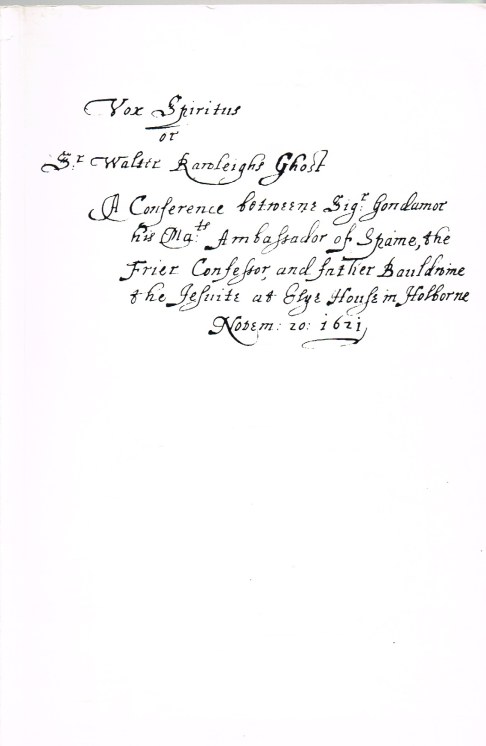 Vox Spiritus
or
Sr Walter Rawleighs Ghost
A Conference betweene Sigr Gondamor
his Mats Ambassador of Spaine, the
Frier Confessor, and father Bauldwine
the Jesuite at Elye House in Holborne
Novem: 20: 1621